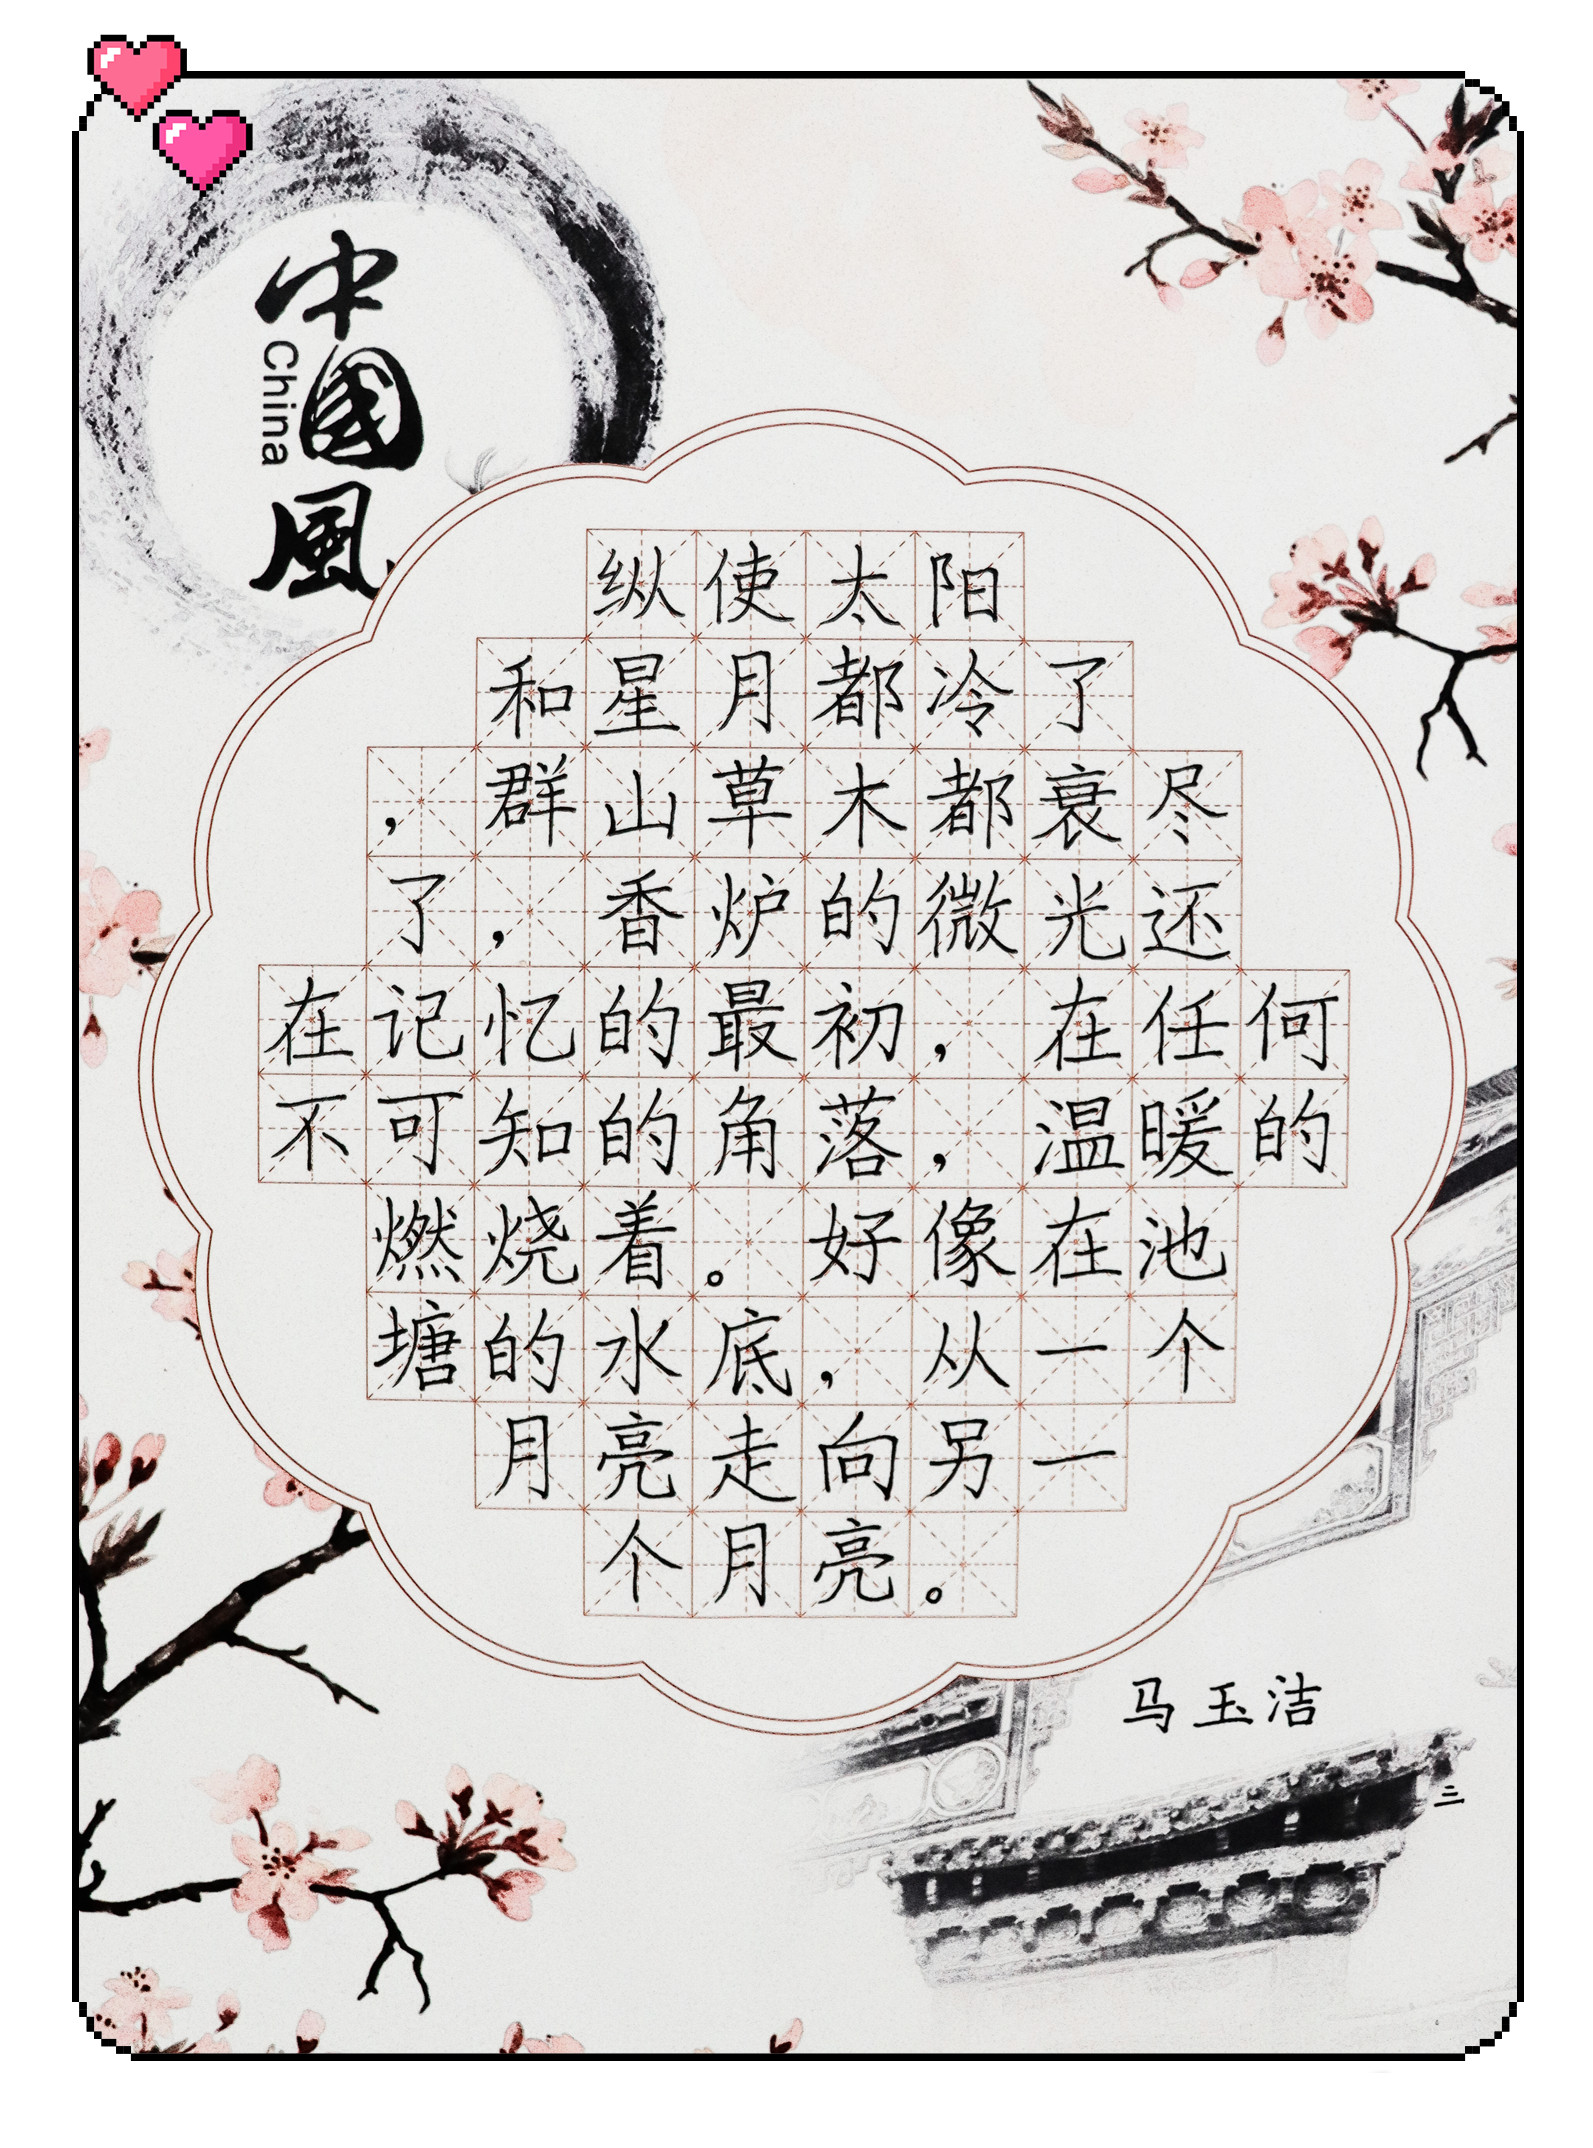 中國風
China
纵使太阳
和星月都冷了
，群山草木都衰尽
了，香炉的微光还
在记忆的最初，在任何
不可知的角落，温暖的
燃烧着。好像在池
塘的水底，从一个
月亮走向另一
个月亮。
马玉洁
三